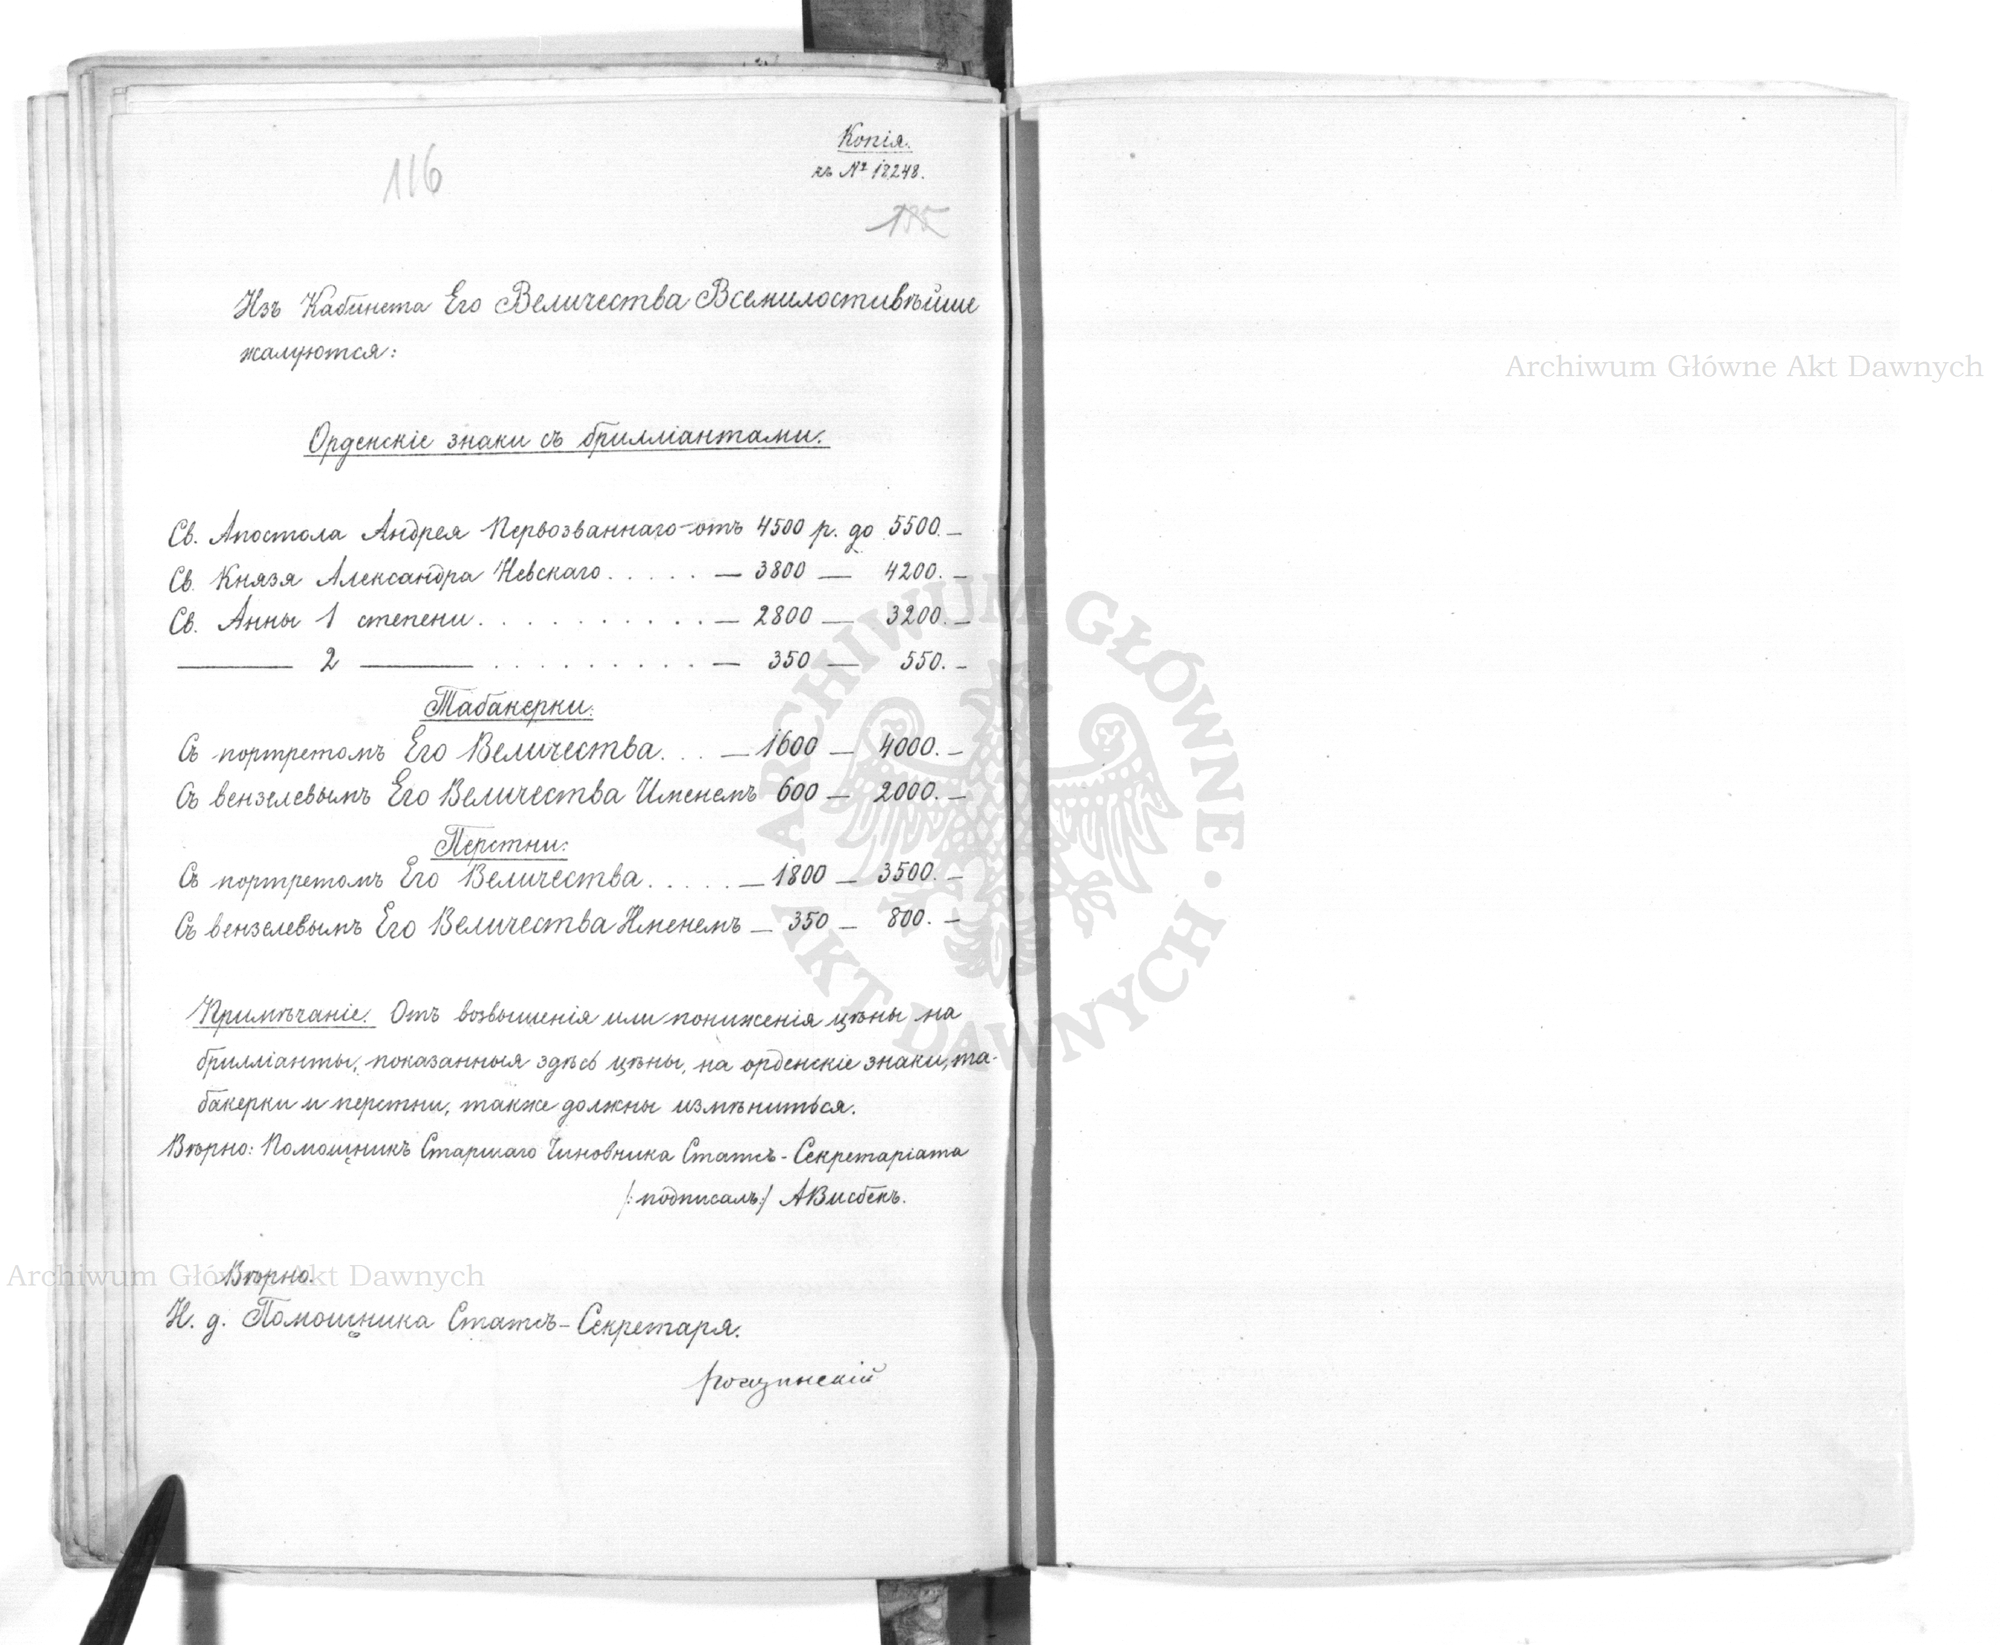 Копія.
къ № 18248.
116
185
Изъ Кабинета Его Величества Всемилостивѣйше
жалуются:
Орденскіе знаки съ брилліантами.
Св. Апостола Андрея Первозваннаго - отъ 4500 р. до 5500. —
Св. Князя Александра Невскаго. . . . . — 3800 — 4200. —
Св. Анны 1 степени. . . . . . . . . . . — 2800 — 3200. —
——— 2 ——— . . . . . . . . . . — 350 — 550. —
Табакерки:
Съ портретомъ Его Величества. . . — 1600 — 4000. —
Съ вензелевымъ Его Величества Именемъ 600 — 2000. —
Перстни:
Съ портретомъ Его Величества. . . . . — 1800 — 3500. —
Съ вензелевымъ Его Величества Именемъ — 350 — 800. —
Примѣчаніе. Отъ возвышенія или пониженія цѣны на
брилліанты, показанныя здѣсь цѣны, на орденскіе знаки, та-
бакерки и перстни, также должны измѣниться.
Вѣрно: Помощникъ Старшаго Чиновника Статсъ-Секретаріата
/:подписалъ:/ АВисбекъ.
Вѣрно.
И. д. Помощника Статсъ-Секретаря.
Archiwum Główne Akt Dawnych
Archiwum Główne Akt Dawnych
ARCHIWUM GŁÓWNE · AKT DAWNYCH ·